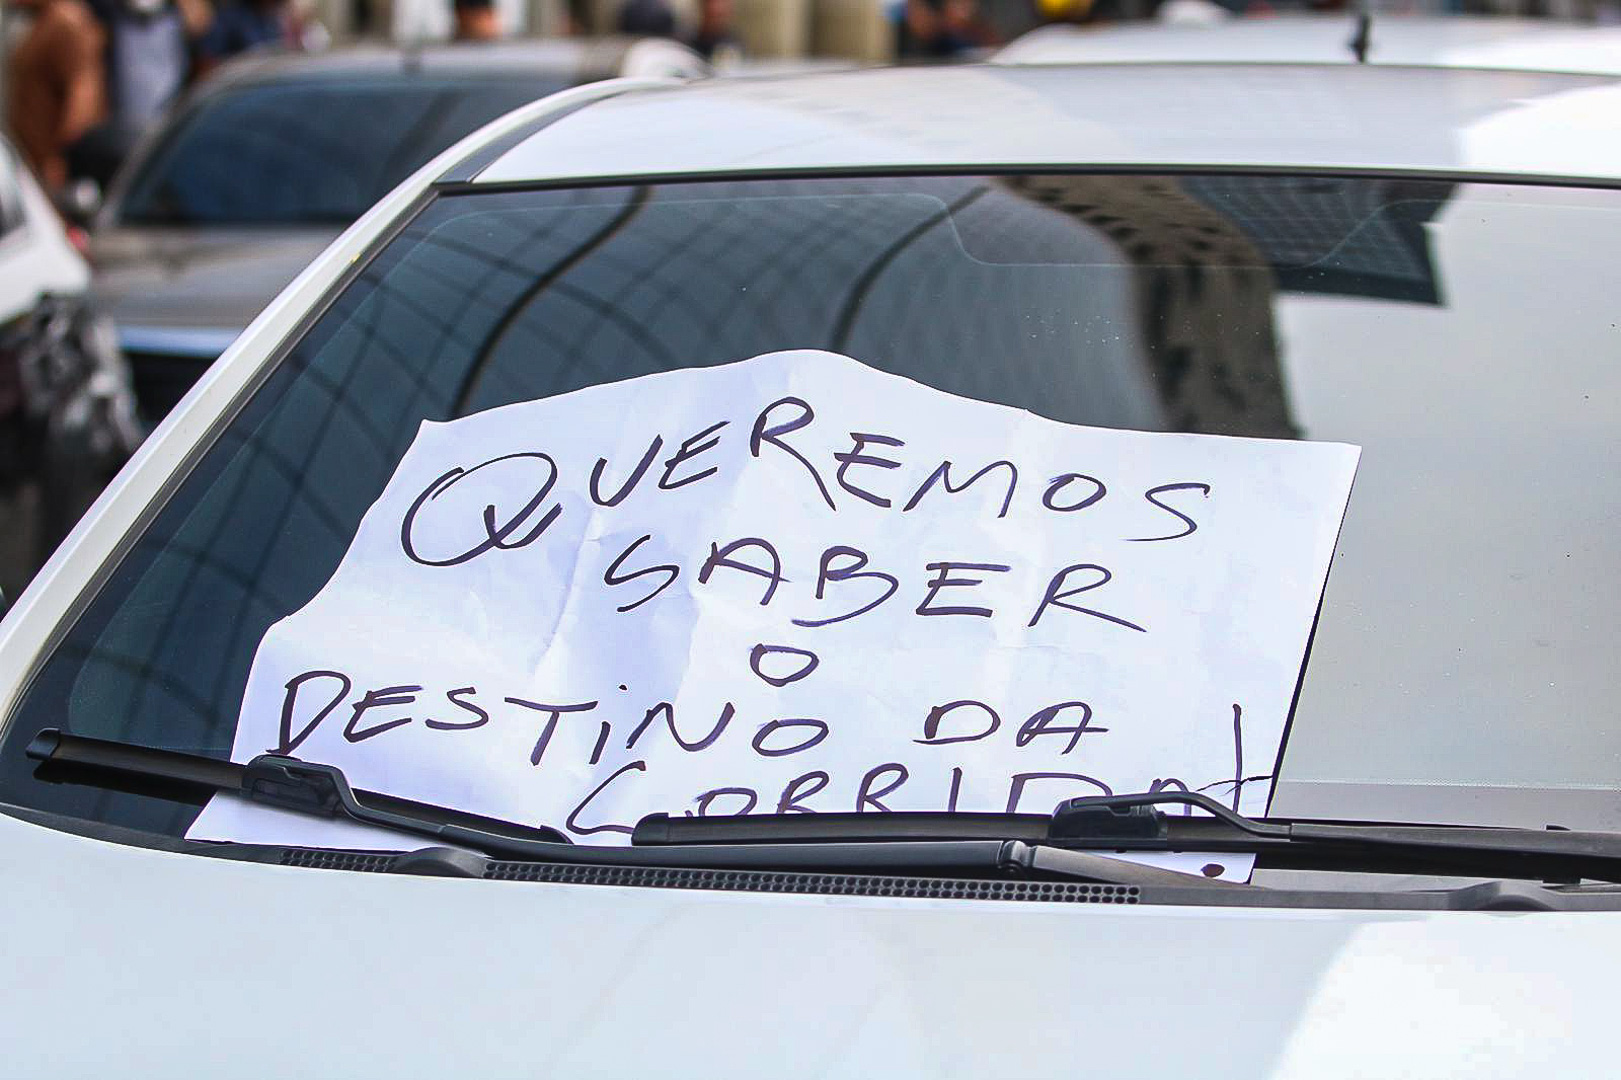 QUEREMOS
SABER
O
DESTiNO DA
CORRIDA!